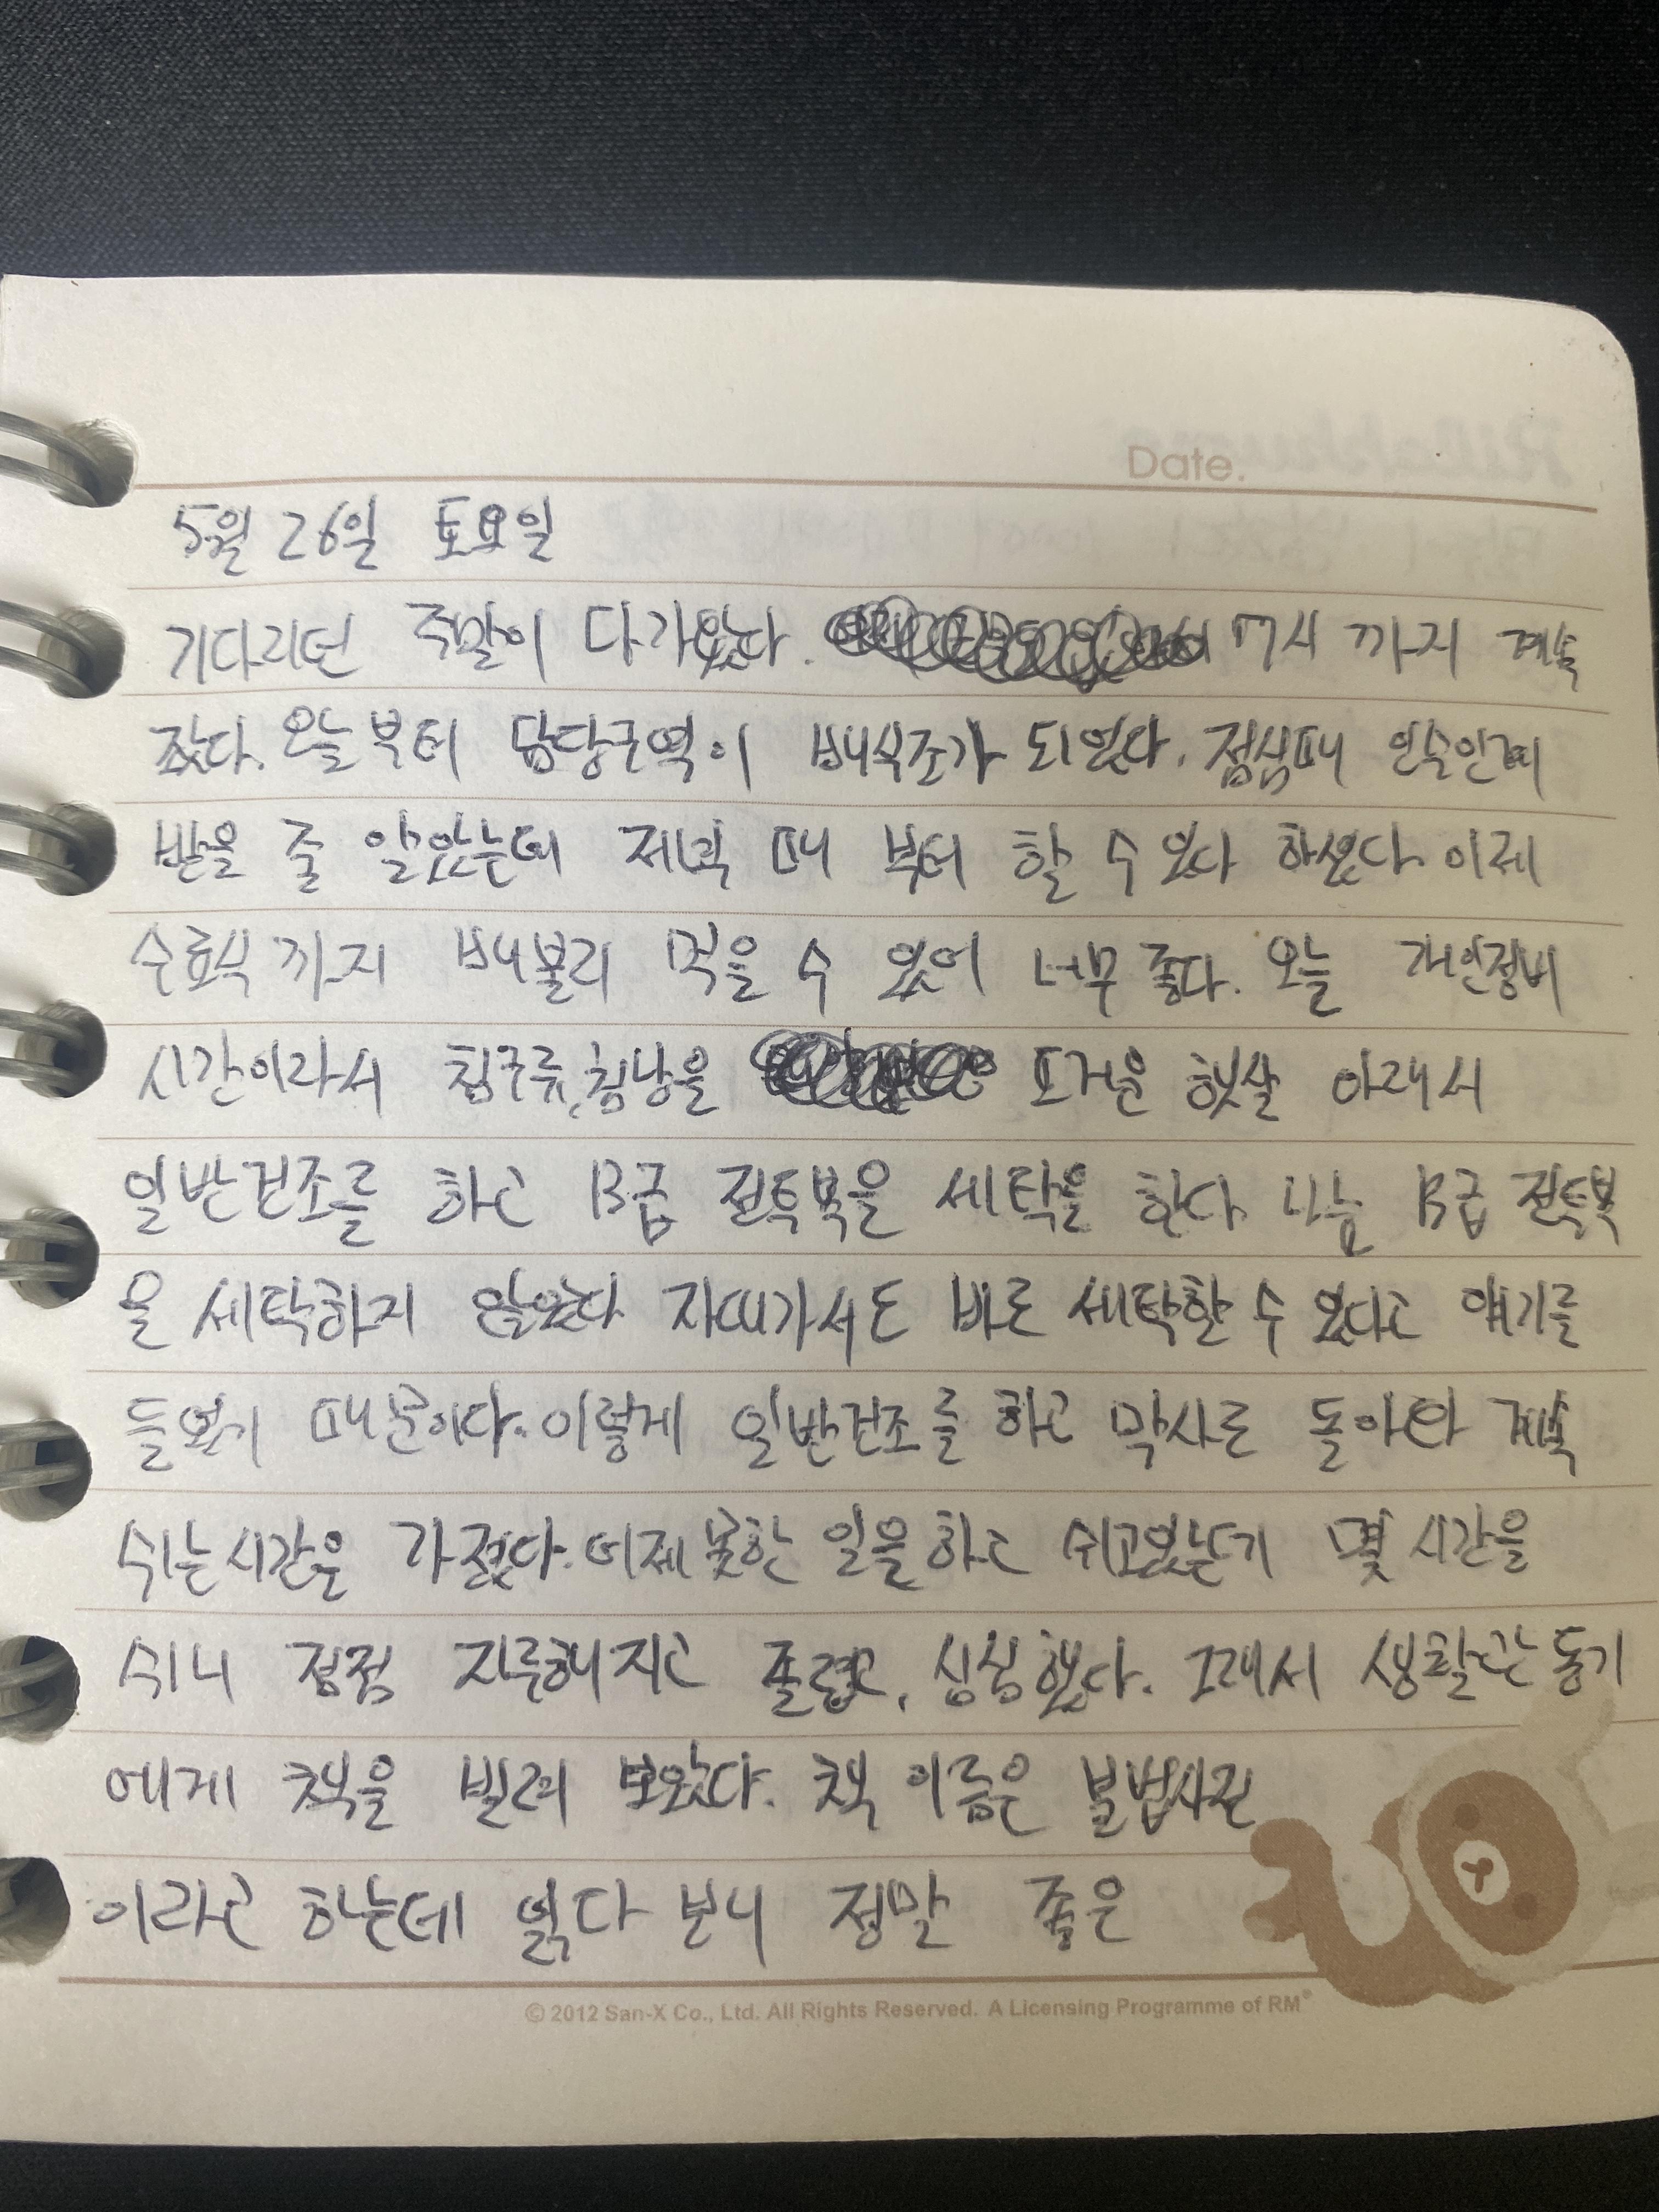 Date.
5월 26일 토요일
기다리던 주말이 다가왔다. 7시 까지 계속
잤다. 오늘부터 담당구역이 배식조가 되었다. 점심때 인수인계
받을 줄 알았는데 저녁 때 부터 할 수 있다 하셨다. 이제
수료식 까지 배불리 먹을 수 있어 너무 좋다. 오늘 개인정비
시간이라서 침구류, 침낭을 뜨거운 햇살 아래서
일반건조를 하고 B급 전투복을 세탁을 한다. 나는 B급 전투복
을 세탁하지 않았다 자대가서도 바로 세탁할 수 있다고 얘기를
들었기 때문이다. 이렇게 일반건조를 하고 막사로 돌아와 계속
쉬는시간을 가졌다. 어제 못한 일을 하고 쉬고있는지 몇 시간을
쉬니 점점 지루해지고 졸렵고, 심심했다. 그래서 생활관 동기
에게 책을 빌려 보았다. 책 이름은 불법사전
이라고 하는데 읽다 보니 정말 좋은
© 2012 San-X Co., Ltd. All Rights Reserved. A Licensing Programme of RM®